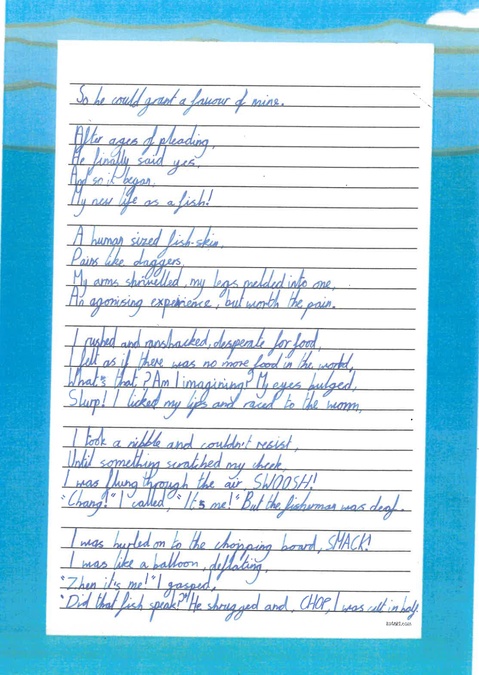 So he could grant a favour of mine.
After ages of pleading,
He finally said yes,
And so it began,
My new life as a fish!
A human sized fish-skin,
Pains like daggers,
My arms shrivelled, my legs melded into one,
An agonising experience, but worth the pain.
I rushed and ranshacked, desperate for food,
I felt as if there was no more food in the world,
What's that? Am I imagining? My eyes bulged,
Slurp! I licked my lips and raced to the worm,
I took a nibble and couldn't resist,
Until something scratched my cheek,
I was flung through the air SWOOSH!
"Chang!" I called, "It's me!" But the fisherman was deaf.
I was hurled on to the chopping board, SMACK!
I was like a balloon, deflating,
"Zhen it's me!" I gasped,
"Did that fish speak?" He shrugged and, CHOP, I was cut in half.